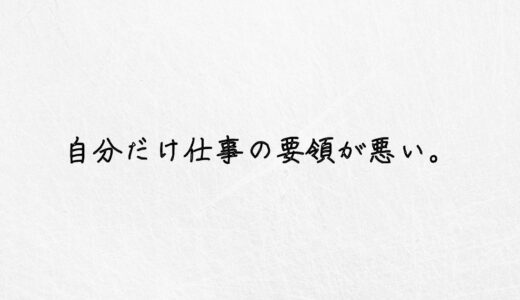 自分だけ仕事の要領が悪い。